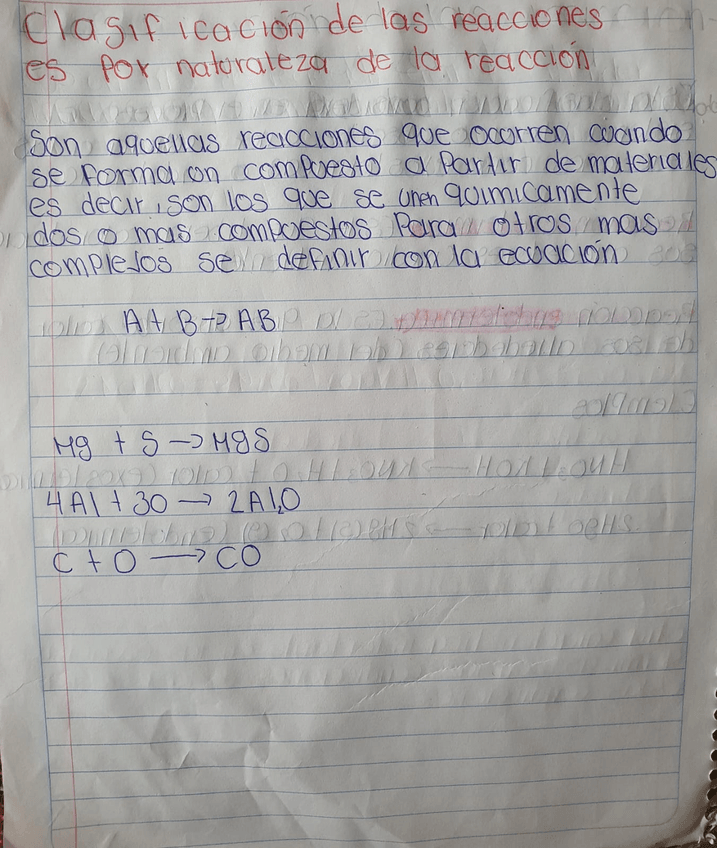 Clasificación de las reacciones
es por naturaleza de la reacción
Son aquellas reacciones que ocorren cuando
se forma on compuesto a partir de materiales
es decir, son los que se unen químicamente
dos o mas compuestos Para otros mas
complejos se definir con la ecuación
A + B → AB
Mg + S → MgS
4Al + 3O → 2Al2O
C + O → CO